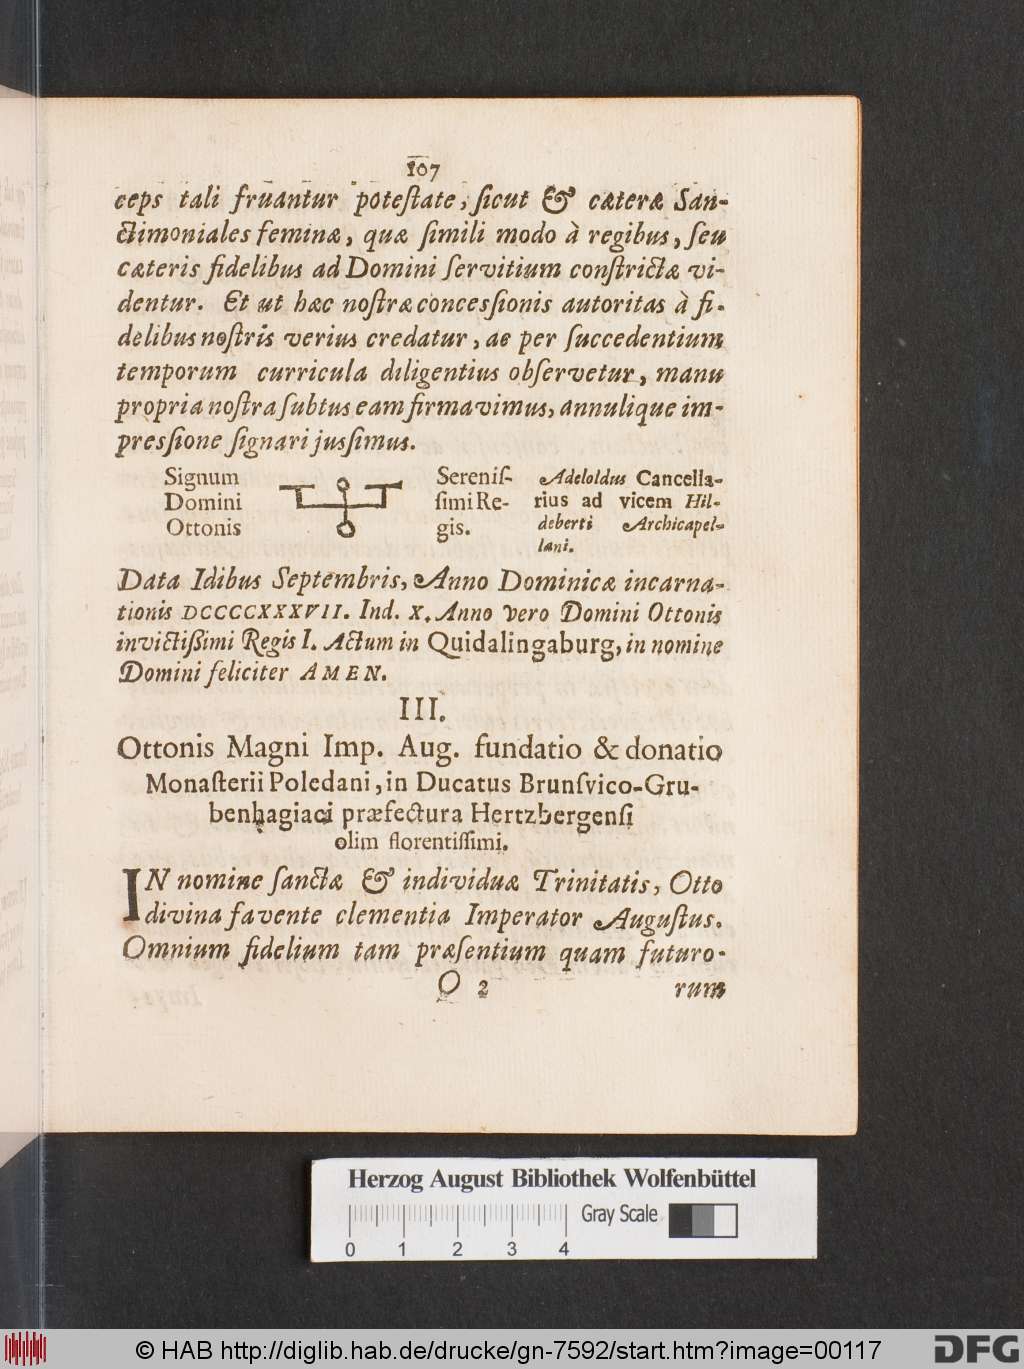 107
ceps tali fruantur poteſtate, ſicut & cæteræ San-
ctimoniales feminæ, quæ ſimili modo à regibus, ſeu
cæteris fidelibus ad Domini ſervitium conſtrictæ vi-
dentur. Et ut hæc noſtræ conceſſionis autoritas à fi-
delibus noſtris verius credatur, ac per ſuccedentium
temporum curricula diligentius obſervetur, manu
propria noſtra ſubtus eam firmavimus, annulique im-
preſſione ſignari juſſimus.
Signum
Domini
Ottonis
Sereniſ-
ſimi Re-
gis.
Adeloldus Cancella-
rius ad vicem Hil-
deberti Archicapel-
lani.
Data Idibus Septembris, Anno Dominicæ incarna-
tionis DCCCCXXXVII. Ind. X. Anno vero Domini Ottonis
invictißimi Regis I. Actum in Quidalingaburg, in nomine
Domini feliciter AMEN.
III.
Ottonis Magni Imp. Aug. fundatio & donatio
Monaſterii Poledani, in Ducatus Brunſvico-Gru-
benhagiaci præfectura Hertzbergenſi
olim florentiſſimi.
IN nomine ſanctæ & individuæ Trinitatis, Otto
divina favente clementia Imperator Auguſtus.
Omnium fidelium tam præſentium quam futuro-
O 2 rum
Herzog August Bibliothek Wolfenbüttel
Gray Scale
0 1 2 3 4
© HAB http://diglib.hab.de/drucke/gn-7592/start.htm?image=00117
DFG